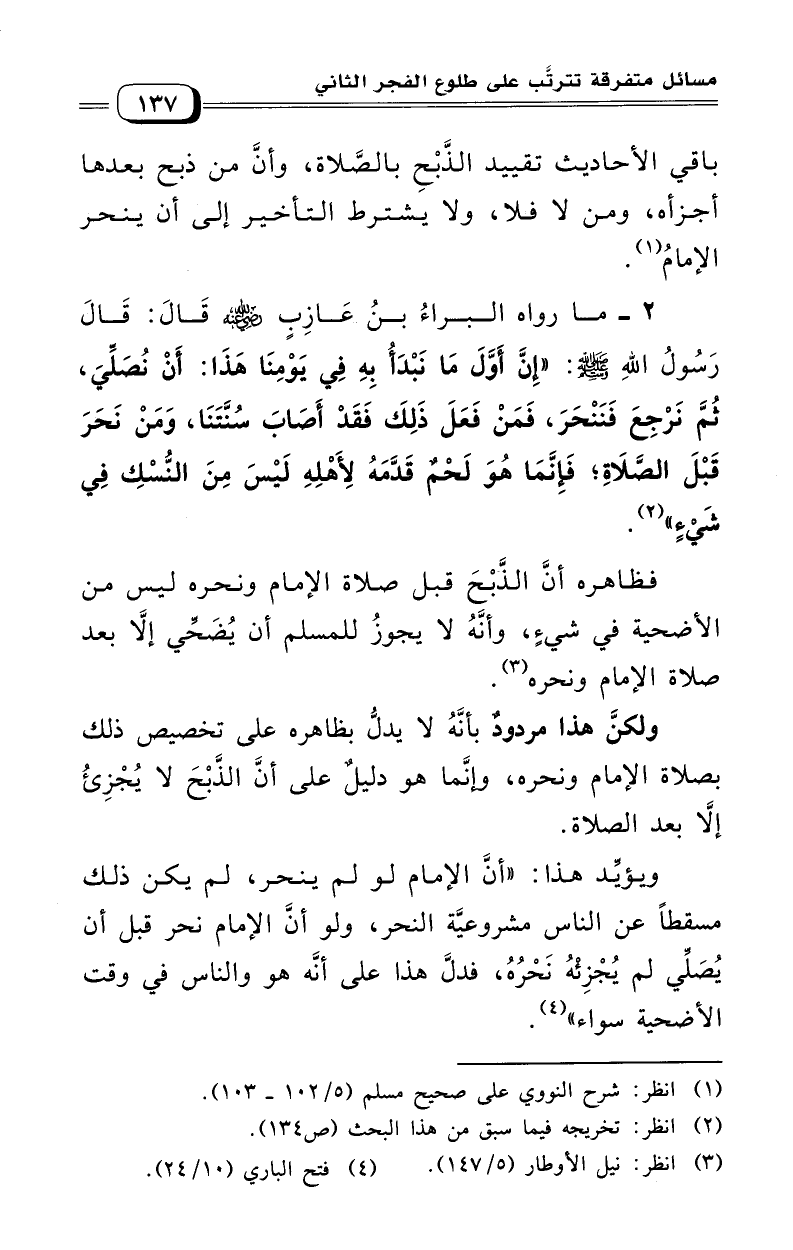 مسائل متفرقة تترتَّب على طلوع الفجر الثاني
١٣٧
باقي الأحاديث تقييد الذَّبْحِ بالصَّلاة، وأنَّ من ذبح بعدها
أجزأه، ومن لا فلا، ولا يشترط التأخير إلى أن ينحر
الإمامُ(١).
٢ ـ ما رواه البراءُ بنُ عَازِبٍ رضي الله عنه قَالَ: قَالَ
رَسُولُ اللهِ ﷺ: «إِنَّ أَوَّلَ مَا نَبْدَأُ بِهِ فِي يَوْمِنَا هَذَا: أَنْ نُصَلِّيَ،
ثُمَّ نَرْجِعَ فَنَنْحَرَ، فَمَنْ فَعَلَ ذَلِكَ فَقَدْ أَصَابَ سُنَّتَنَا، وَمَنْ نَحَرَ
قَبْلَ الصَّلَاةِ؛ فَإِنَّمَا هُوَ لَحْمٌ قَدَّمَهُ لِأَهْلِهِ لَيْسَ مِنَ النُّسْكِ فِي
شَيْءٍ»(٢).
فظاهره أنَّ الذَّبْحَ قبل صلاة الإمام ونحره ليس من
الأضحية في شيءٍ، وأنَّهُ لا يجوزُ للمسلم أن يُضَحِّي إلَّا بعد
صلاة الإمام ونحره(٣).
ولكنَّ هذا مردودٌ بأنَّهُ لا يدلُّ بظاهره على تخصيص ذلك
بصلاة الإمام ونحره، وإنَّما هو دليلٌ على أنَّ الذَّبْحَ لا يُجْزِئُ
إلَّا بعد الصلاة.
ويؤيِّد هذا: «أنَّ الإمام لو لم ينحر، لم يكن ذلك
مسقطاً عن الناس مشروعيَّة النحر، ولو أنَّ الإمام نحر قبل أن
يُصَلِّي لم يُجْزِئْهُ نَحْرُهُ، فدلَّ هذا على أنَّه هو والناس في وقت
الأضحية سواء»(٤).
(١) انظر: شرح النووي على صحيح مسلم (٥/ ١٠٢ ـ ١٠٣).
(٢) انظر: تخريجه فيما سبق من هذا البحث (ص١٣٤).
(٣) انظر: نيل الأوطار (٥/ ١٤٧). (٤) فتح الباري (١٠/ ٢٤).